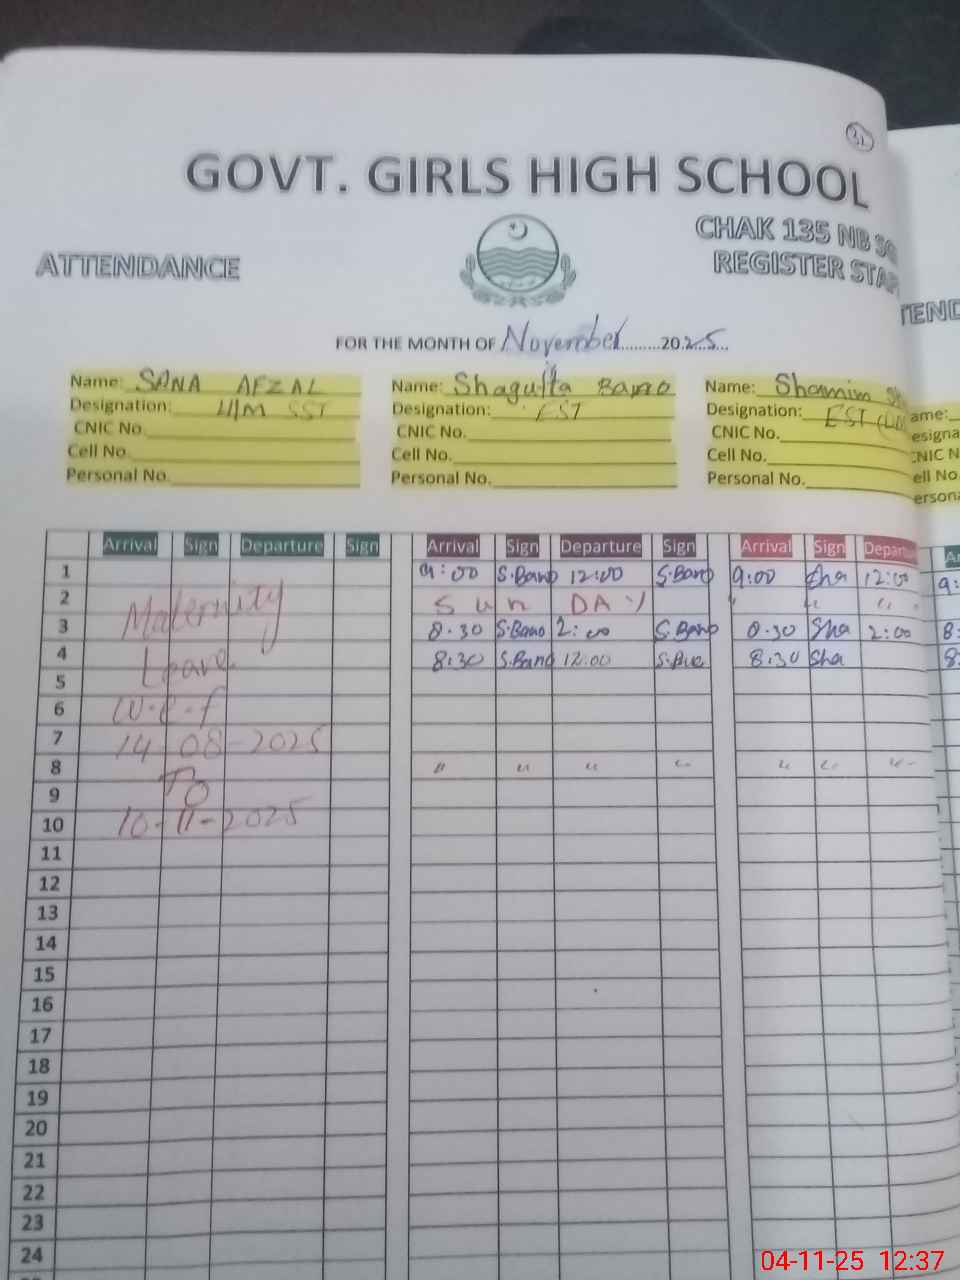 32
GOVT. GIRLS HIGH SCHOOL
CHAK 135 NB
ATTENDANCE
REGISTER STAF
TEND
FOR THE MONTH OF November.........2025...
Name: SANA AFZAL
Designation: H/M SST
CNIC No.
Cell No.
Personal No.
Name: Shagufta Bano
Designation: EST
CNIC No.
Cell No.
Personal No.
Name: Shamim
Designation: EST
CNIC No.
Cell No.
Personal No.
ame:
esigna
CNIC N
ell No.
ersona
Arrival Sign Departure Sign Arrival Sign Departure Sign Arrival Sign Departu Ar
1 9:00 S.Bano 12:00 S.Bano 9:00 Sha 12:00 9:
2 SunDAY " " " "
3 8.30 S.Bano 2:00 S.Bano 8.30 Sha 2:00 8:
4 8:30 S.Bano 12:00 8:30 Sha 8:
Maternity
Leave
w-e-f
14-08-2025
To
10-11-2025
5
6
7
8 " " " " " " "
9
10
11
12
13
14
15
16
17
18
19
20
21
22
23
24
04-11-25 12:37